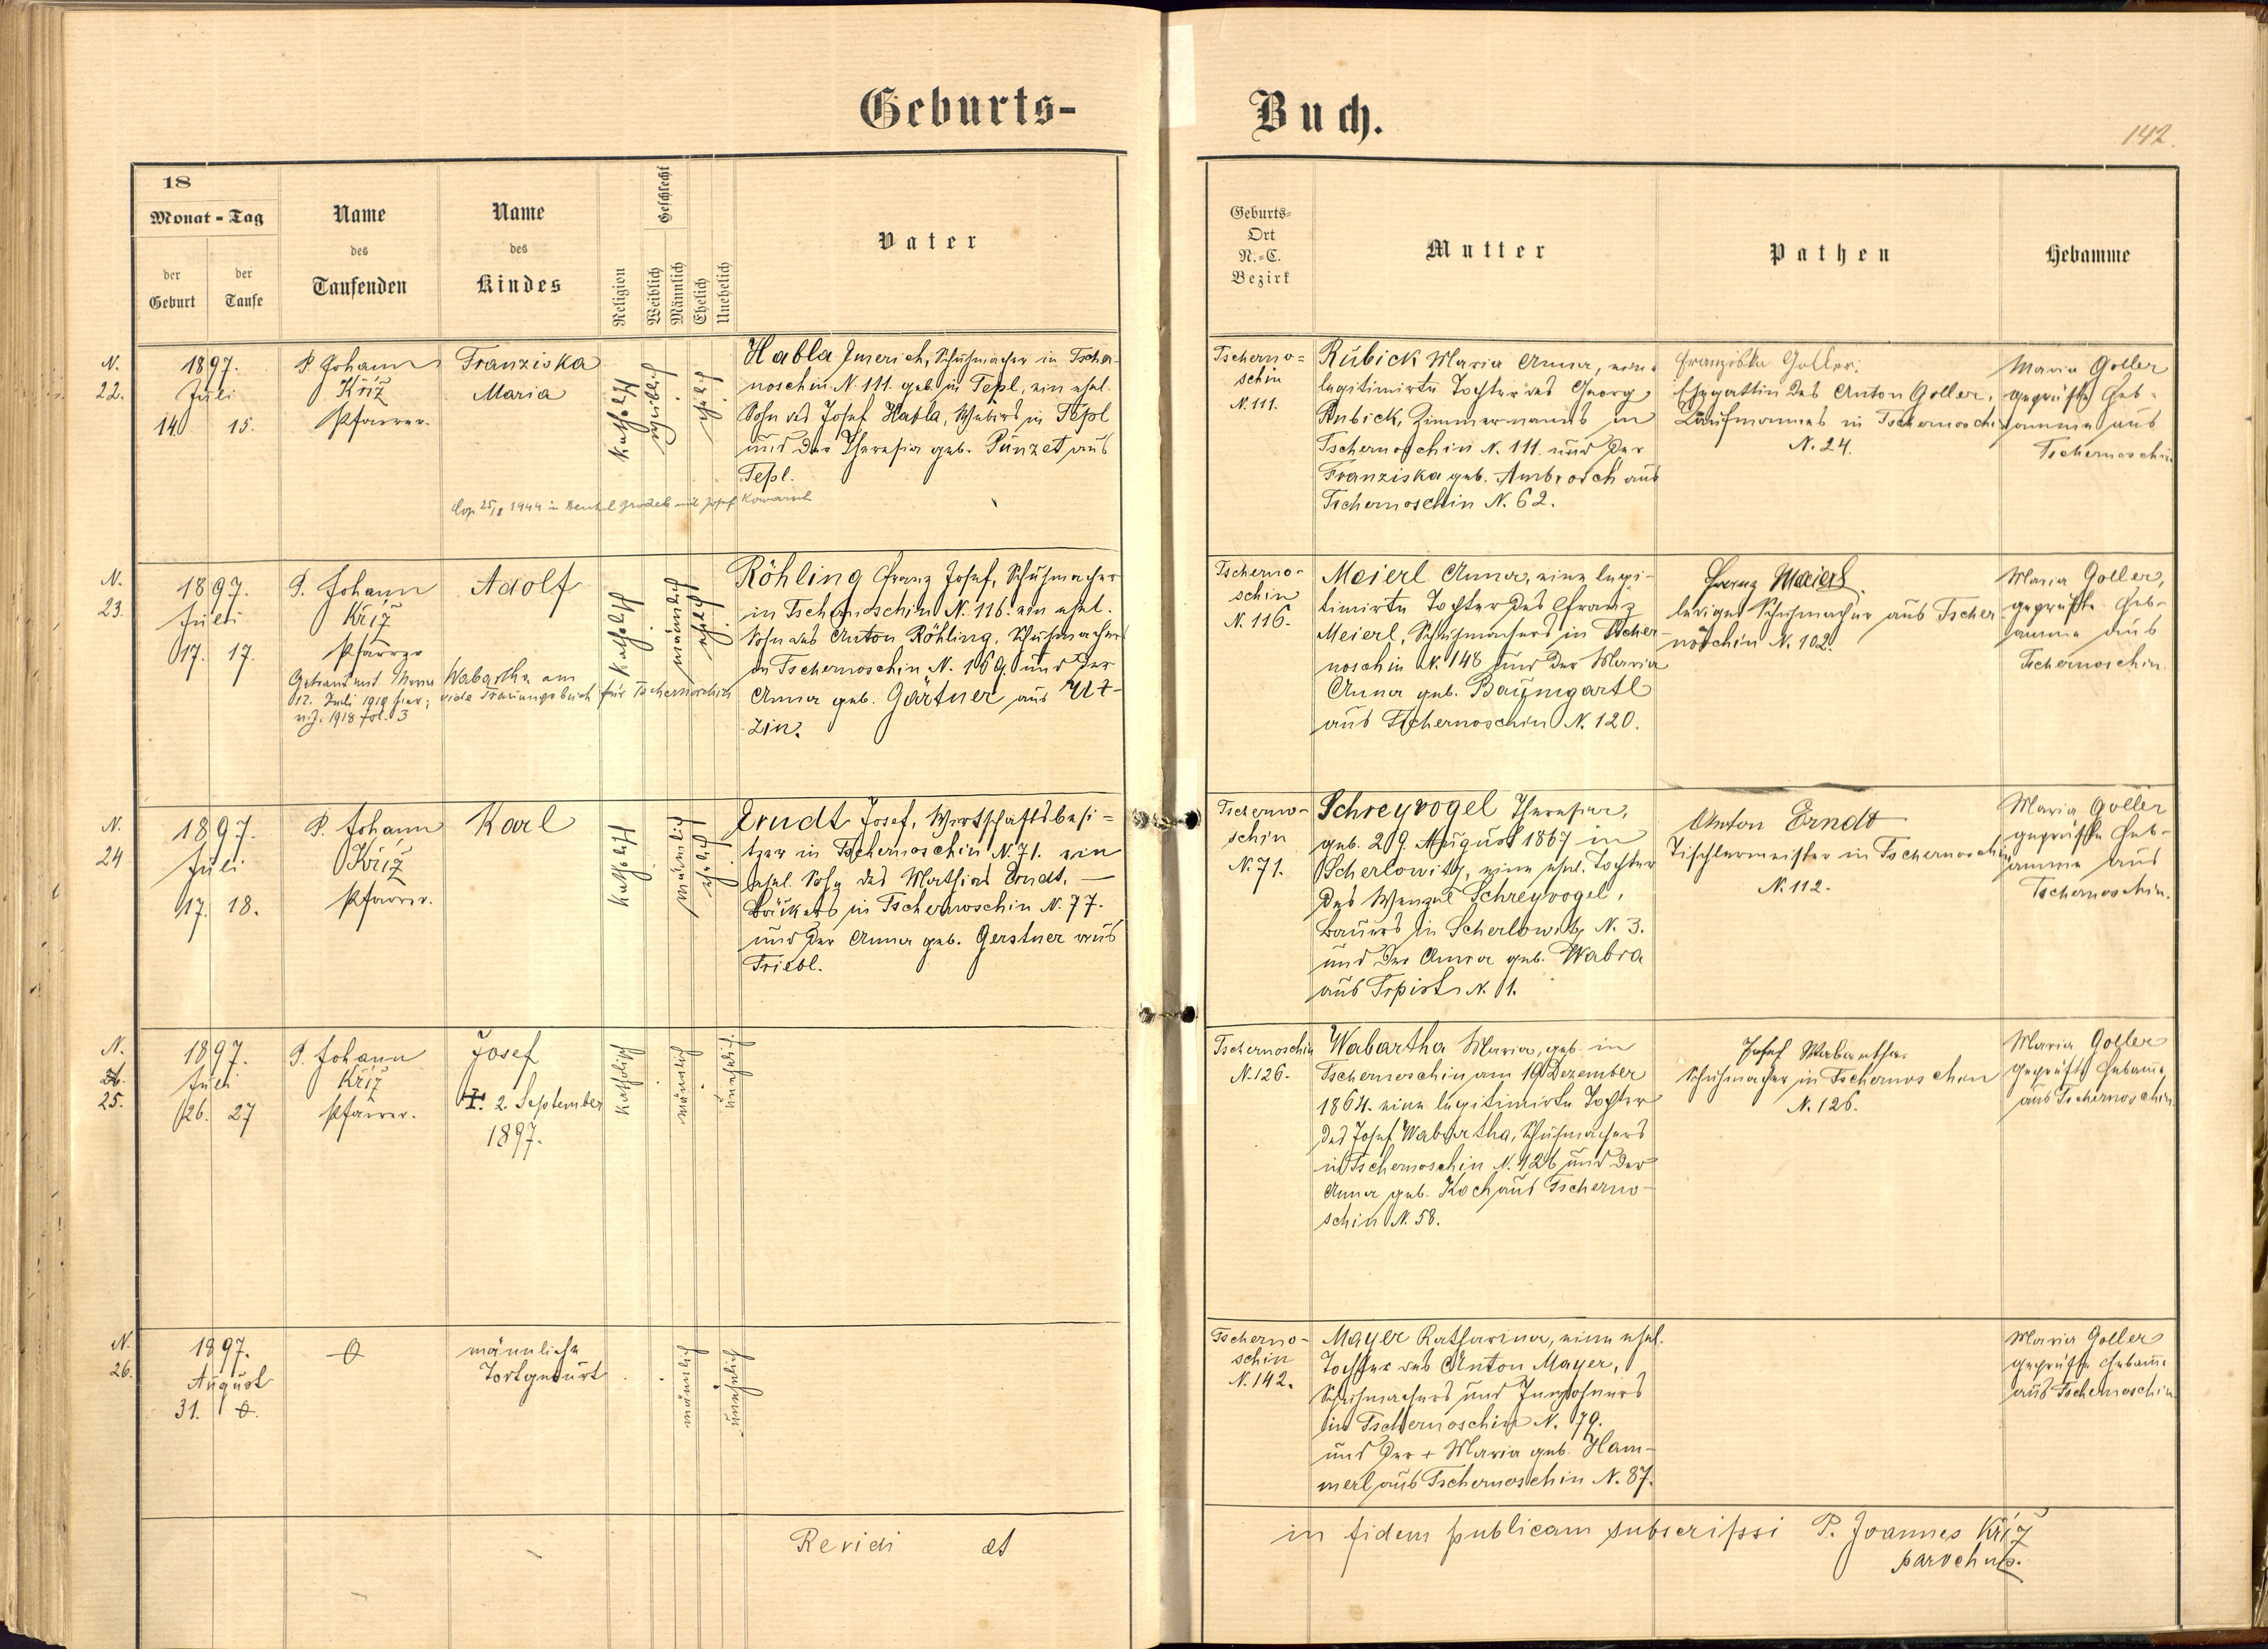 Geburts-
Buch.
142.
18
Monat - Tag
der
Geburt
der
Taufe
Name
des
Taufenden
Name
des
Kindes
Religion
Geschlecht
Weiblich
Männlich
Ehelich
Unehelich
Vater
Geburts-
Ort
N.-C.
Bezirk
Mutter
Pathen
Hebamme
N.
22.
1897.
Juli
14. 15.
P. Johann
Kříž
Pfarrer.
Franziska
Maria
katholisch
weiblich
ehelich
Habla Emerich, Schuhmacher in Tscher-
noschin N. 111. geb. in Tepl, ein ehel.
Sohn des Josef Habla, Webers in Tepl
und der Theresia geb. Punzet aus
Tepl.
Cop. 25/8 1944 in mit Josef Kowarsch
Tscherno-
schin
N. 111.
Rubick Maria Anna, eine
legitimirte Tochter des Georg
Rubick, Zimmermanns in
Tschernoschin N. 111. und der
Franziska geb. Ambrosch aus
Tschernoschin N. 62.
Franziska Goller,
Ehegattin des Anton Goller,
Kaufmannes in Tschernoschin
N. 24.
Maria Goller
geprüfte Heb-
amme aus
Tschernoschin
N.
23.
1897.
Juli
17. 17.
P. Johann
Kříž
Pfarrer
Adolf
katholisch
männlich
ehelich
Röhling Franz Josef, Schuhmacher
in Tschernoschin N. 116. ein ehel.
Sohn des Anton Röhling, Schuhmachers
in Tschernoschin N. 169. und der
Anna geb. Gärtner aus Ut-
zin.
Getraut mit Maria Wabartha am
12. Juli 1919 hier; vide Trauungsbuch für Tschernoschin
v. J. 1918 fol. 3
Tscherno-
schin
N. 116.
Meierl Anna, eine legi-
timirte Tochter des Franz
Meierl, Schuhmachers in Tscher-
noschin N. 148 und der Maria
Anna geb. Baumgartl
aus Tschernoschin N. 120.
Franz Maierl
lediger Schuhmacher aus Tscher-
noschin N. 102.
Maria Goller,
geprüfte Heb-
amme aus
Tschernoschin.
N.
24
1897.
Juli
17. 18.
P. Johann
Kříž
Pfarrer.
Karl
katholisch
männlich
ehelich
Erndt Josef, Wirtschaftsbesi-
tzer in Tschernoschin N. 71. ein
ehel. Sohn des Mathias Erndt,
Bäckers in Tschernoschin N. 77.
und der Anna geb. Gerstner aus
Triebl.
Tscherno-
schin
N. 71.
Schreyvogel Theresia,
geb. 29. August 1867 in
Scherlowitz, eine ehel. Tochter
des Wenzel Schreyvogel,
Bauers in Scherlowitz N. 3.
und der Anna geb. Wabra
aus Trpist N. 1.
Anton Erndt
Tischlermeister in Tschernoschin
N. 112.
Maria Goller
geprüfte Heb-
amme aus
Tschernoschin.
N.
25.
1897.
Juli
26. 27
P. Johann
Kříž
Pfarrer.
Josef
†. 2. September
1897.
katholisch
männlich
unehelich
Tschernoschin
N. 126.
Wabartha Maria, geb. in
Tschernoschin am 19 Dezember
1864. eine legitimirte Tochter
des Josef Wabartha, Schuhmachers
in Tschernoschin N. 126 und der
Anna geb. Koch aus Tscherno-
schin N. 58.
Josef Wabartha
Schuhmacher in Tschernoschin
N. 126.
Maria Goller
geprüfte Hebam̅e
aus Tschernoschin
N.
26.
1897.
August
31. 0.
0
männliche
Todtgeburt
männlich
unehelich
Tscherno-
schin
N. 142.
Mayer Katharina, eine ehel.
Tochter des Anton Mayer,
Schuhmachers und Inwohners
in Tschernoschin N. 79.
und der + Maria geb. Ham-
merl aus Tschernoschin N. 87.
Maria Goller
geprüfte Hebam̅e
aus Tschernoschin
Revidi et
in fidem publicam subscripsi P. Joannes Kříž
parochus.